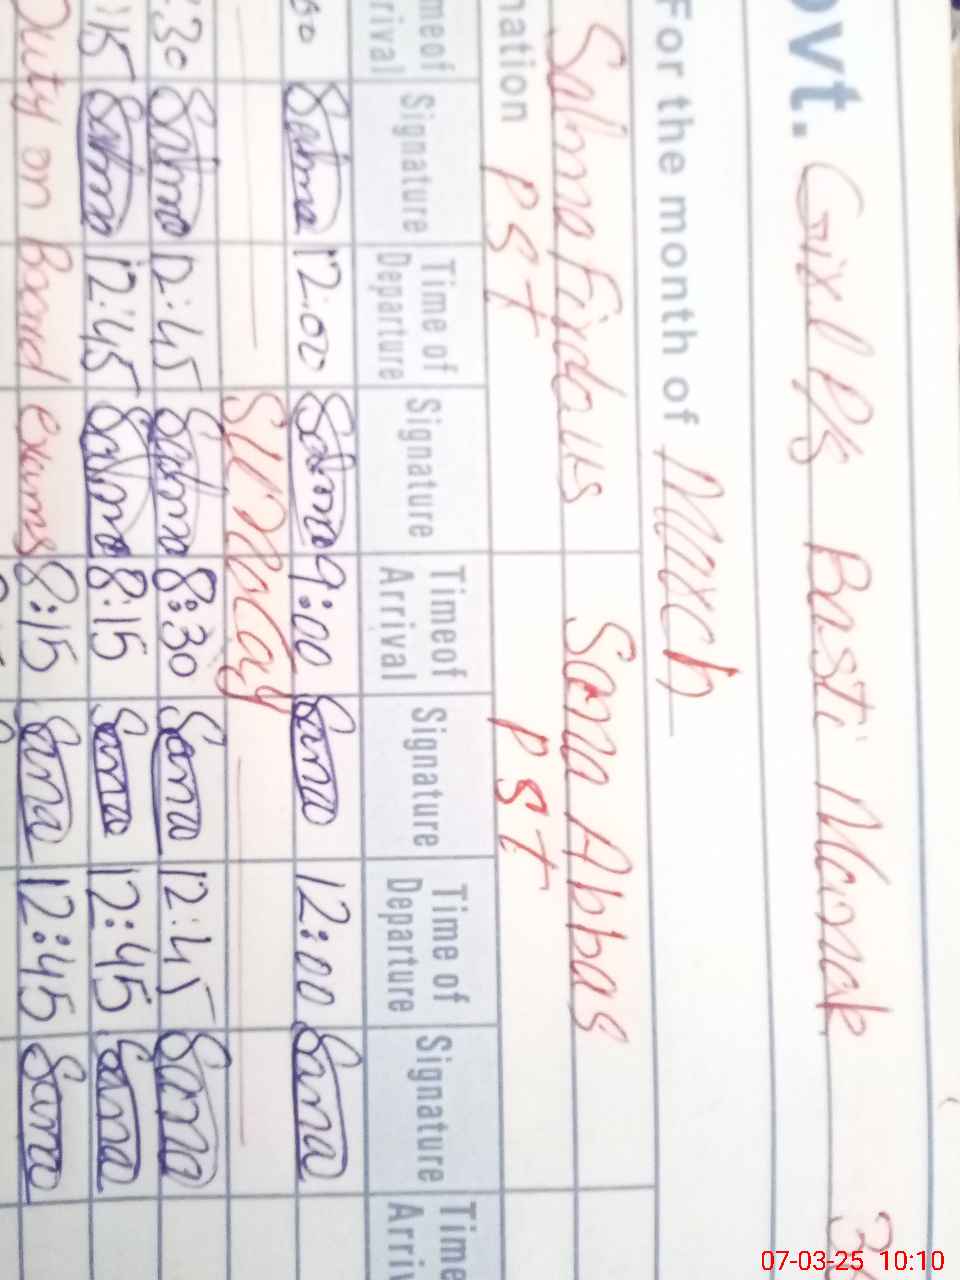 ovt. Girl P/s Basti Moorak 3
For the month of March
Salma Firdaus Sana Abbas
nation PST PST
meof rival Signature Time of Departure Signature Timeof Arrival Signature Time of Departure Signature Time Arriv
00 Salma 12:00 Salma 9:00 Sana 12:00 Sana
Sunday
:30 Salma 12:45 Salma 8:30 Sana 12:45 Sana
:15 Salma 12:45 Salma 8:15 Sana 12:45 Sana
Duty on Board exams 8:15 Sana 12:45 Sana
07-03-25 10:10